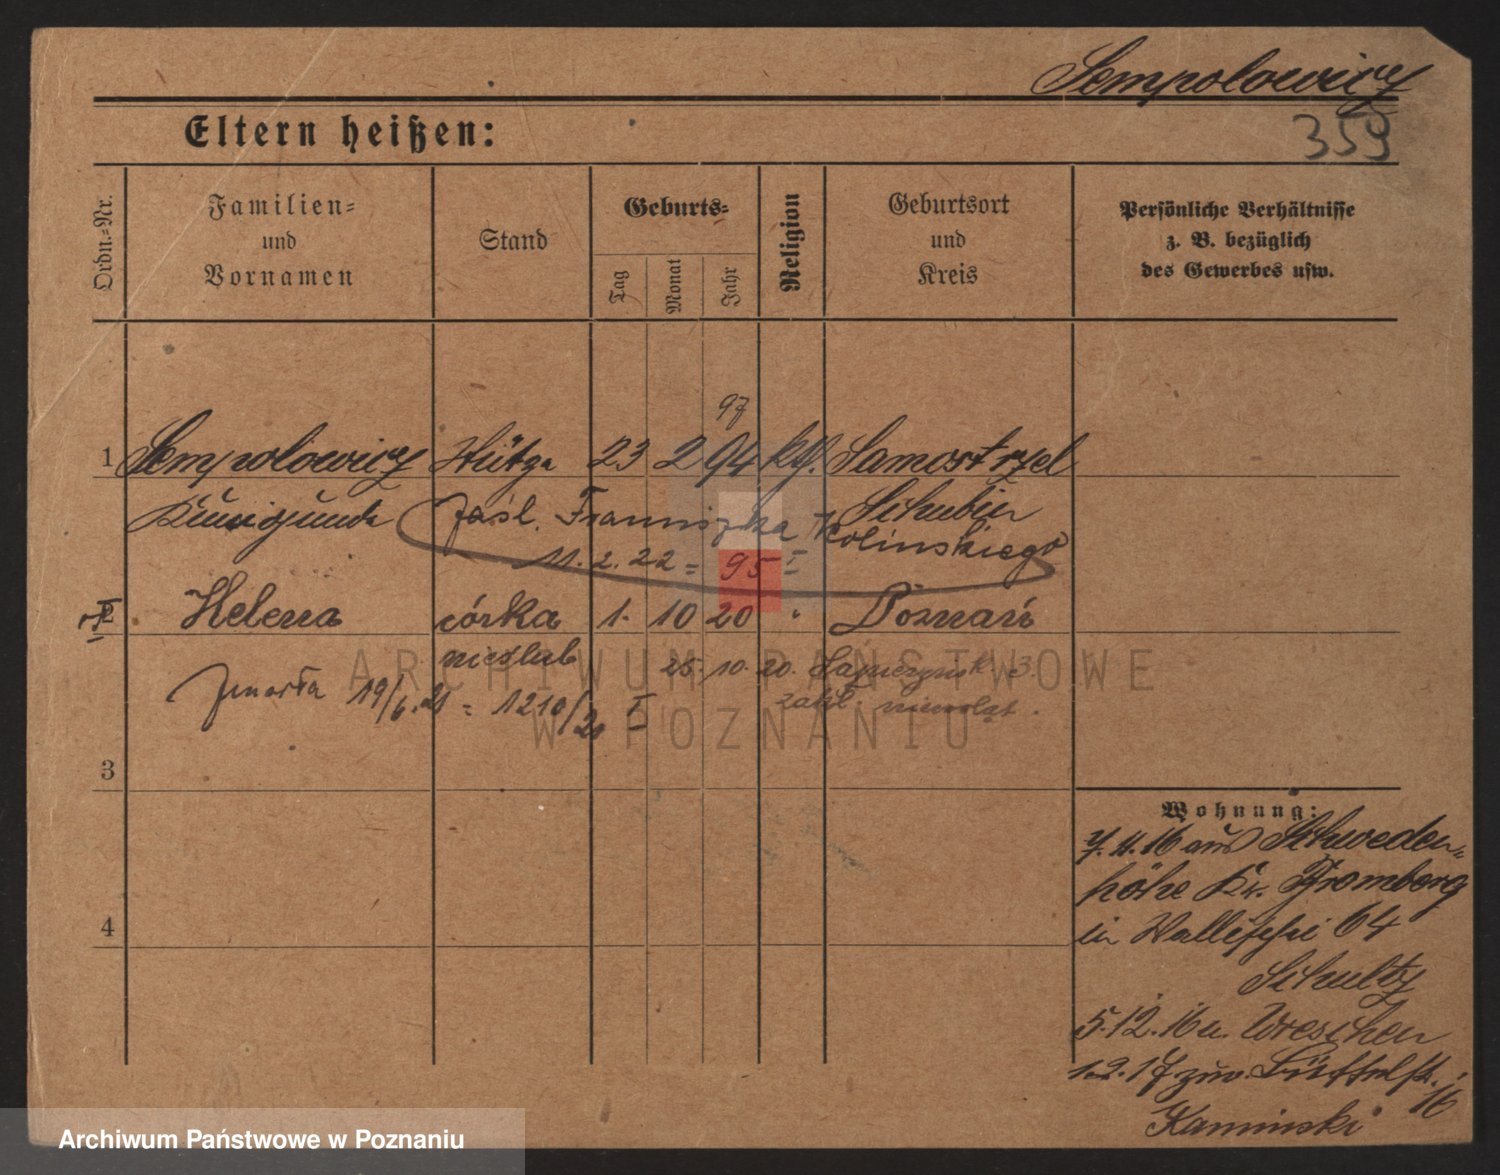 Sempolowicz
359
Eltern heißen:
Ordn.-Nr.
Familien=
und
Vornamen
Stand
Geburts=
Tag
Monat
Jahr
Religion
Geburtsort
und
Kreis
Persönliche Verhältnisse
z. B. bezüglich
des Gewerbes usw.
97
1 Sempolowicz 23 2 94 kth. Samostrzel
Kunigunda Schubin
zaśl. Franciszka Kolinskiego
11.2.22 = 95 I
2 Helena córka 1. 10 20 " Poznań
nieślub 25. 10. 20.
Zmarła 19/6.21 = 1210/21 I
zakł.
3
4
Wohnung:
7.11.16 aus Schweden=
höhe Kr. Bromberg
in Wallischei 64
Schultz
5.12.16 n. Wreschen
1.2.17 zuw. Büttelstr. 16
Kaminski
ARCHIWUM PAŃSTWOWE
W POZNANIU
Archiwum Państwowe w Poznaniu